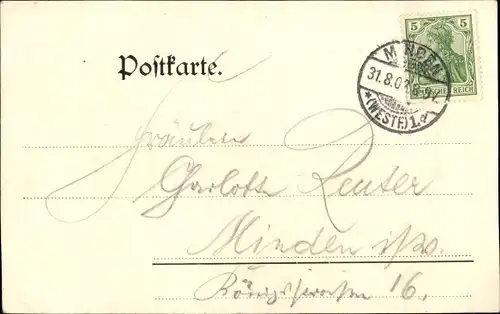 5 5
MINDEN
DEUTSCHES REICH
31.8.02
*(WESTF.)1.e
Postkarte.
Fräulein
Charlotte Reuter
Minden i/W.
Königstraße 16.